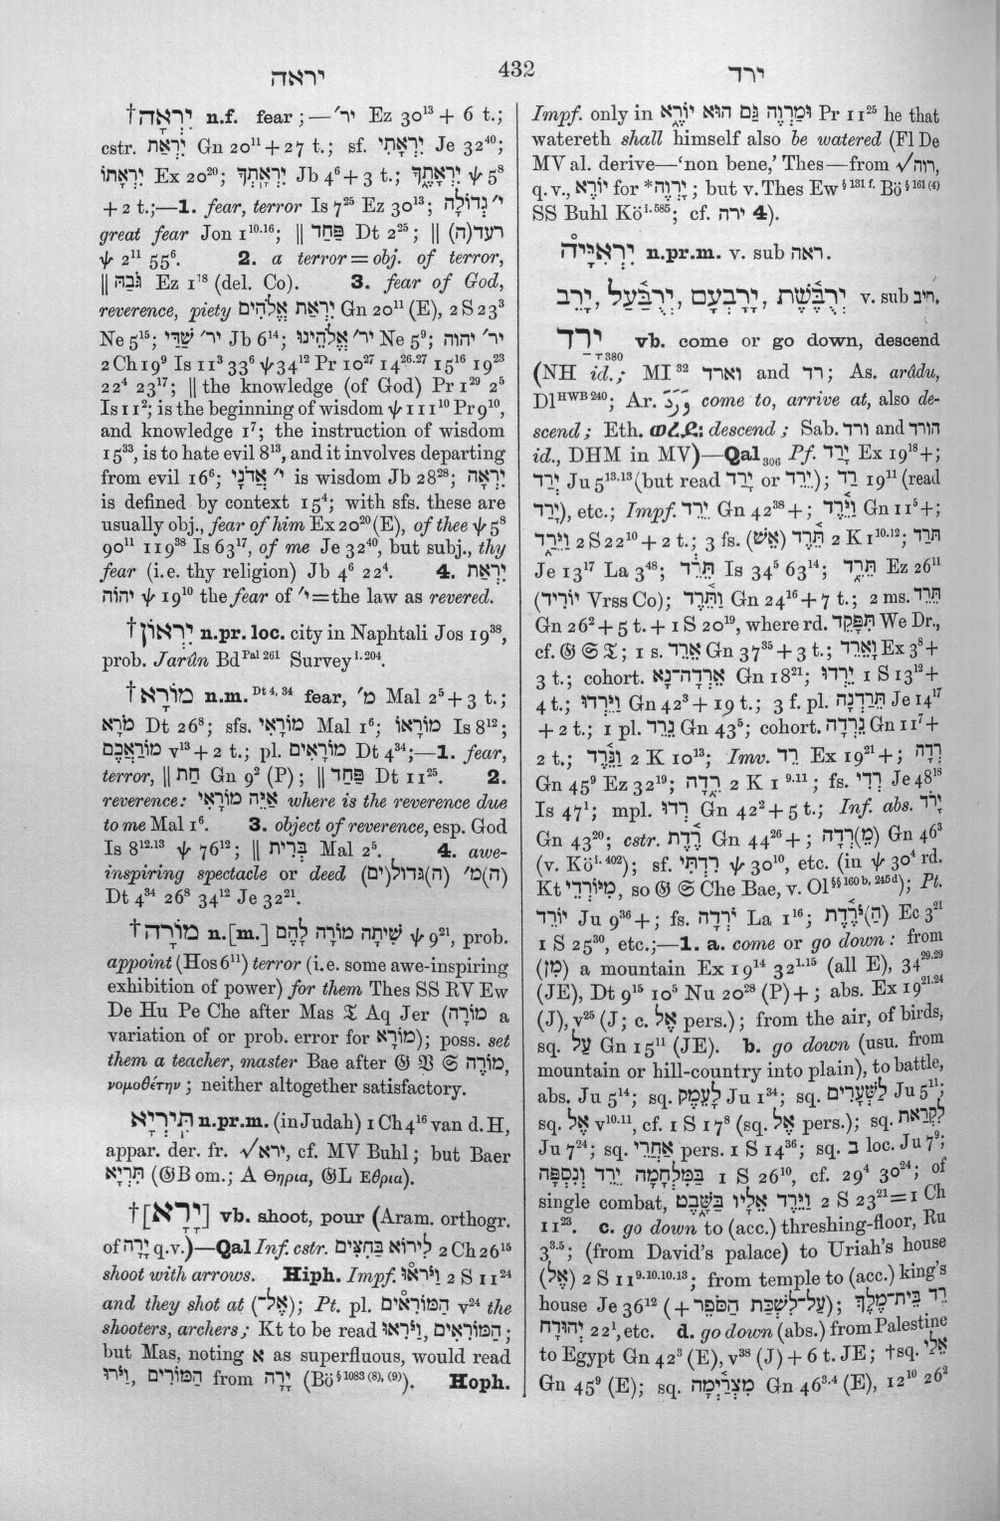 יראה
432
ירד
†יִרְאָה n.f. fear;—יר׳ Ez 30¹³ + 6 t.;
cstr. יִרְאַת Gn 20¹¹ + 27 t.; sf. יִרְאָתִי Je 32⁴⁰;
יִרְאָתוֹ Ex 20²⁰; יִרְאָתְךָ Jb 4⁶ + 3 t.; יִרְאָתֶךָ ψ 5⁸
+ 2 t.;—1. fear, terror Is 7²⁵ Ez 30¹³; י׳ גְדוֹלָה
great fear Jon 1¹⁰·¹⁶; ‖ פַּחַד Dt 2²⁵; ‖ רעד(ה)
ψ 2¹¹ 55⁶. 2. a terror = obj. of terror,
‖ גֹּבַהּ Ez 1¹⁸ (del. Co). 3. fear of God,
reverence, piety יִרְאַת אֱלֹהִים Gn 20¹¹ (E), 2 S 23³
Ne 5¹⁵; יר׳ שַׁדַּי Jb 6¹⁴; יר׳ אֱלֹהֵינוּ Ne 5⁹; יר׳ יהוה
2 Ch 19⁹ Is 11³ 33⁶ ψ 34¹² Pr 10²⁷ 14²⁶·²⁷ 15¹⁶ 19²³
22⁴ 23¹⁷; ‖ the knowledge (of God) Pr 1²⁹ 2⁵
Is 11²; is the beginning of wisdom ψ 111¹⁰ Pr 9¹⁰,
and knowledge 1⁷; the instruction of wisdom
15³³, is to hate evil 8¹³, and it involves departing
from evil 16⁶; י׳ אֲדֹנָי is wisdom Jb 28²⁸; יִרְאָה
is defined by context 15⁴; with sfs. these are
usually obj., fear of him Ex 20²⁰ (E), of thee ψ 5⁸
90¹¹ 119³⁸ Is 63¹⁷, of me Je 32⁴⁰, but subj., thy
fear (i.e. thy religion) Jb 4⁶ 22⁴. 4. יִרְאַת
יהוה ψ 19¹⁰ the fear of י׳ = the law as revered.
†יִרְאוֹן n.pr. loc. city in Naphtali Jos 19³⁸,
prob. Jarûn Bd Pal 261 Survey i. 204.
†מוֹרָא n.m. Dt 4, 34 fear, מ׳ Mal 2⁵ + 3 t.;
מֹרָא Dt 26⁸; sfs. מוֹרָאִי Mal 1⁶; מוֹרָאוֹ Is 8¹²;
מוֹרַאֲכֶם v¹³ + 2 t.; pl. מוֹרָאִים Dt 4³⁴;—1. fear,
terror, ‖ חַת Gn 9² (P); ‖ פַּחַד Dt 11²⁵. 2.
reverence: אַיֵּה מוֹרָאִי where is the reverence due
to me Mal 1⁶. 3. object of reverence, esp. God
Is 8¹²·¹³ ψ 76¹²; ‖ בְּרִית Mal 2⁵. 4. awe-
inspiring spectacle or deed (ה)מ׳ (ה)גדול(ים)
Dt 4³⁴ 26⁸ 34¹² Je 32²¹.
†מוֹרָה n.[m.] שִׁיתָה מוֹרָה לָהֶם ψ 9²¹, prob.
appoint (Hos 6¹¹) terror (i.e. some awe-inspiring
exhibition of power) for them Thes SS RV Ew
De Hu Pe Che after Mas 𝔗 Aq Jer (מוֹרָה a
variation of or prob. error for מוֹרָא); poss. set
them a teacher, master Bae after 𝔊 𝔙 𝔖 מוֹרֶה,
νομοθέτην; neither altogether satisfactory.
תִּירְיָא n.pr.m. (in Judah) 1 Ch 4¹⁶ van d. H,
appar. der. fr. √ירא, cf. MV Buhl; but Baer
תִּרְיָא (𝔊B om.; A Θηρια, 𝔊L Εθρια).
†[יָרָא] vb. shoot, pour (Aram. orthogr.
of יָרָה q.v.)—Qal Inf. cstr. לִירוֹא בַּחִצִּים 2 Ch 26¹⁵
shoot with arrows. Hiph. Impf. וַיֹּרְאוּ 2 S 11²⁴
and they shot at (אֶל־); Pt. pl. הַמּוֹרְאִים v²⁴ the
shooters, archers; Kt to be read וַיֹּרְאוּ, הַמּוֹרְאִים;
but Mas, noting א as superfluous, would read
וַיֹּרוּ, הַמּוֹרִים from יָרָה (Bö § 1083 (8), (9)). Hoph.
Impf. only in וּמַרְוֶה גַּם הוּא יוֹרֶא Pr 11²⁵ he that
watereth shall himself also be watered (Fl De
MV al. derive—‘non bene,’ Thes—from √רוה,
q.v., יוֹרֶא for *יָרְוֶה; but v. Thes Ew § 131 f. Bö § 161 (4)
SS Buhl Kö i. 585; cf. ירה 4).
יִרְאִיָּיה n.pr.m. v. sub ראה.
יְרֻבֶּשֶׁת, יָרָבְעָם, יְרֻבַּעַל, יָרֵב v. sub חיב,
יָרַד 380 vb. come or go down, descend
(NH id.; MI 32 וארד and רד; As. arâdu,
Dl HWB 240; Ar. ورد come to, arrive at, also de-
scend; Eth. ወረደ: descend; Sab. ורד and הורד
id., DHM in MV)—Qal 306 Pf. יָרַד Ex 19¹⁸ +;
יְרַד Ju 5¹³·¹³ (but read יָרַד or יֵרֵד); רַד 19¹¹ (read
יָרַד), etc.; Impf. יֵרֵד Gn 42³⁸ +; וַיֵּרֶד Gn 11⁵ +;
וַיֵּרַד 2 S 22¹⁰ + 2 t.; 3 fs. (אֵשׁ) תֵּרֶד 2 K 1¹⁰·¹²; תֵּרַד
Je 13¹⁷ La 3⁴⁸; תֵּרֵד Is 34⁵ 63¹⁴; תֵּרֵד Ez 26¹¹
(יוֹרִיד Vrss Co); וַתֵּרֶד Gn 24¹⁶ + 7 t.; 2 ms. תֵּרֵד
Gn 26² + 5 t. + 1 S 20¹⁹, where rd. תִּפָּקֵד We Dr.,
cf. 𝔊 𝔖 𝔗; 1 s. אֵרֵד Gn 37³⁵ + 3 t.; וָאֵרֵד Ex 3⁸ +
3 t.; cohort. אֵרְדָה־נָּא Gn 18²¹; יֵרְדוּ 1 S 13¹² +
4 t.; וַיֵּרְדוּ Gn 42³ + 19 t.; 3 f. pl. תֵּרַדְנָה Je 14¹⁷
+ 2 t.; 1 pl. נֵרֵד Gn 43⁵; cohort. נֵרְדָה Gn 11⁷ +
2 t.; וַנֵּרֶד 2 K 10¹³; Imv. רֵד Ex 19²¹ +; רְדָה
Gn 45⁹ Ez 32¹⁹; רֵדָה 2 K 1⁹·¹¹; fs. רְדִי Je 48¹⁸
Is 47¹; mpl. רְדוּ Gn 42² + 5 t.; Inf. abs. יָרֹד
Gn 43²⁰; cstr. רֶדֶת Gn 44²⁶ +; (מֵ)רְדָה Gn 46³
(v. Kö i. 402); sf. רִדְתִּי ψ 30¹⁰, etc. (in ψ 30⁴ rd.
Kt מִיּוֹרְדֵי, so 𝔊 𝔖 Che Bae, v. Ol §§ 160 b, 245 d); Pt.
יוֹרֵד Ju 9³⁶ +; fs. יֹרְדָה La 1¹⁶; (הַ)יֹּרֶדֶת Ec 3²¹
1 S 25³⁰, etc.;—1. a. come or go down: from
(מִן) a mountain Ex 19¹⁴ 32¹·¹⁵ (all E), 34²⁹·²⁹
(JE), Dt 9¹⁵ 10⁵ Nu 20²⁸ (P) +; abs. Ex 19²¹·²⁴
(J), v²⁵ (J; c. אֶל pers.); from the air, of birds,
sq. עַל Gn 15¹¹ (JE). b. go down (usu. from
mountain or hill-country into plain), to battle,
abs. Ju 5¹⁴; sq. לָעֵמֶק Ju 1³⁴; sq. לַשְּׁעָרִים Ju 5¹¹;
sq. אֶל v¹⁰·¹¹, cf. 1 S 17⁸ (sq. אֶל pers.); sq. לִקְרַאת
Ju 7²⁴; sq. אַחֲרֵי pers. 1 S 14³⁶; sq. ב loc. Ju 7⁹;
בַּמִּלְחָמָה יֵרֵד וְנִסְפָּה 1 S 26¹⁰, cf. 29⁴ 30²⁴; of
single combat, וַיֵּרֶד אֵלָיו בַּשֵּׁבֶט 2 S 23²¹ = 1 Ch
11²³. c. go down to (acc.) threshing-floor, Ru
3³·⁵; (from David’s palace) to Uriah’s house
(אֶל) 2 S 11⁹·¹⁰·¹⁰·¹³; from temple to (acc.) king’s
house Je 36¹² (+ עַל־לִשְׁכַּת הַסֹּפֵר); רֵד בֵּית־מֶלֶךְ
יְהוּדָה 22¹, etc. d. go down (abs.) from Palestine
to Egypt Gn 42³ (E), v³⁸ (J) + 6 t. JE; †sq. אֵלַי
Gn 45⁹ (E); sq. מִצְרַיְמָה Gn 46³·⁴ (E), 12¹⁰ 26²